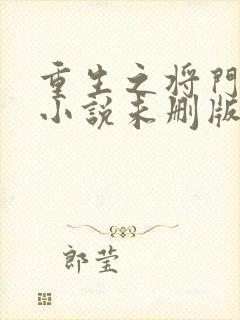 重生之将门
小说未删版
郎莹